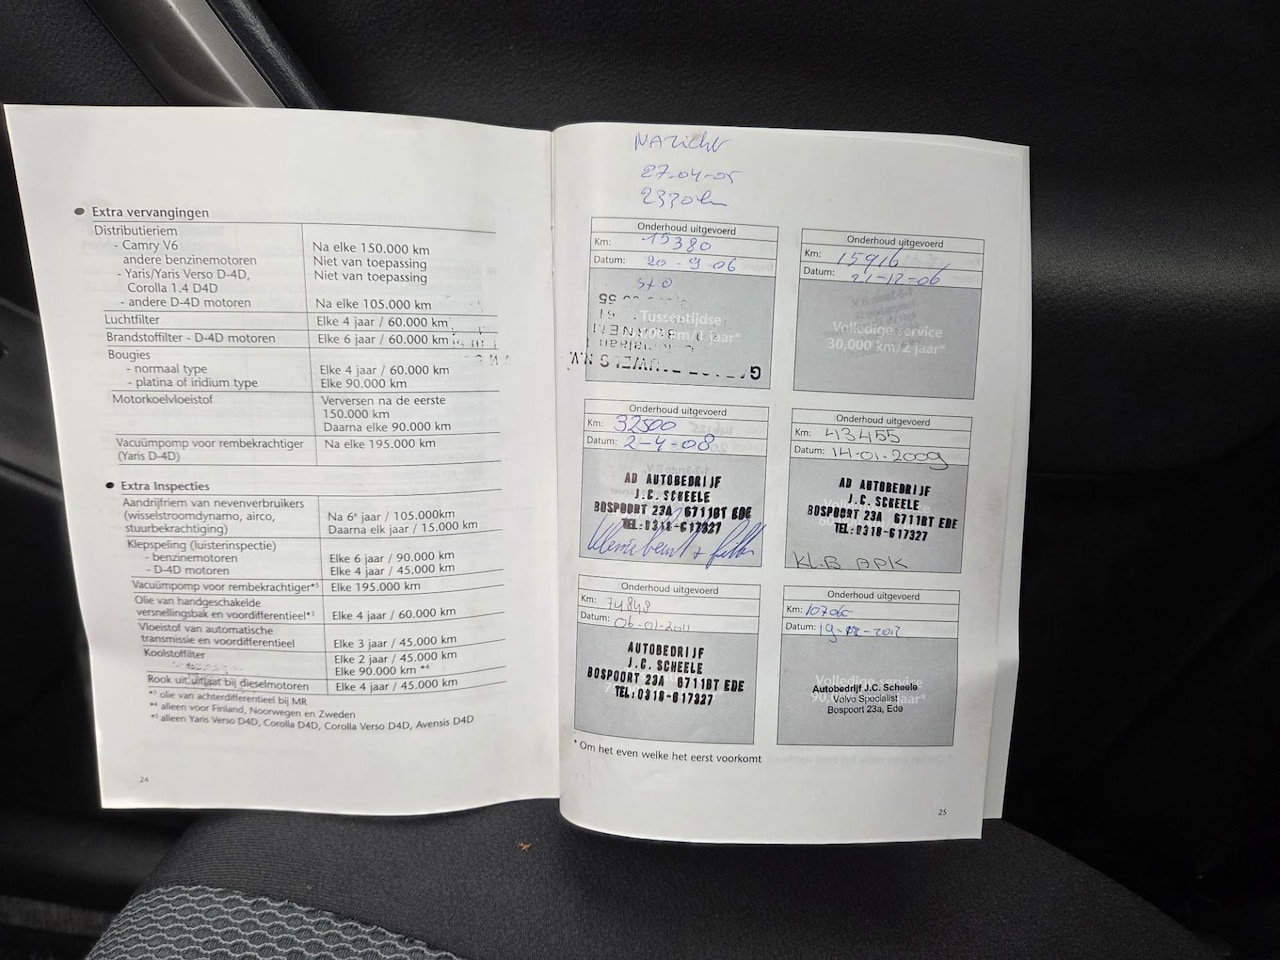 Extra vervangingen
Distributieriem
- Camry V6 Na elke 150.000 km
andere benzinemotoren Niet van toepassing
- Yaris/Yaris Verso D-4D, Niet van toepassing
Corolla 1.4 D4D
- andere D-4D motoren Na elke 105.000 km
Luchtfilter Elke 4 jaar / 60.000 km
Brandstoffilter - D-4D motoren Elke 6 jaar / 60.000 km
Bougies
- normaal type Elke 4 jaar / 60.000 km
- platina of iridium type Elke 90.000 km
Motorkoelvloeistof Verversen na de eerste
150.000 km
Daarna elke 90.000 km
Vacuümpomp voor rembekrachtiger Na elke 195.000 km
(Yaris D-4D)
Extra Inspecties
Aandrijfriem van nevenverbruikers
(wisselstroomdynamo, airco, Na 6e jaar / 105.000km
stuurbekrachtiging) Daarna elk jaar / 15.000 km
Klepspeling (luisterinspectie)
- benzinemotoren Elke 6 jaar / 90.000 km
- D-4D motoren Elke 4 jaar / 45.000 km
Vacuümpomp voor rembekrachtiger*5 Elke 195.000 km
Olie van handgeschakelde
versnellingsbak en voordifferentieel*3 Elke 4 jaar / 60.000 km
Vloeistof van automatische
transmissie en voordifferentieel Elke 3 jaar / 45.000 km
Koolstoffilter Elke 2 jaar / 45.000 km
Elke 90.000 km *4
Rook uit uitlaat bij dieselmotoren Elke 4 jaar / 45.000 km
*3 olie van achterdifferentieel bij MR
*4 alleen voor Finland, Noorwegen en Zweden
*5 alleen Yaris Verso D4D, Corolla D4D, Corolla Verso D4D, Avensis D4D
24
27-04-05
Onderhoud uitgevoerd
Km: 15380
Datum: 20-9-06
Tussentijdse
Onderhoud uitgevoerd
Km: 15916
Datum: 21-12-06
Volledige service
30,000 km/2 jaar*
Onderhoud uitgevoerd
Km: 32500
Datum: 2-4-08
AD AUTOBEDRIJF
J.C. SCHEELE
BOSPOORT 23A 6711BT EDE
TEL:0318-617327
Onderhoud uitgevoerd
Km: 43455
Datum: 14-01-2009
AD AUTOBEDRIJF
J.C. SCHEELE
BOSPOORT 23A 6711BT EDE
TEL:0318-617327
KL.B APK
Onderhoud uitgevoerd
Km: 74848
Datum: 06-01-2011
AUTOBEDRIJF
J.C. SCHEELE
BOSPOORT 23A 6711BT EDE
TEL:0318-617327
Onderhoud uitgevoerd
Km:
Datum:
Autobedrijf J.C. Scheele
Volvo Specialist
Bospoort 23a, Ede
* Om het even welke het eerst voorkomt
25